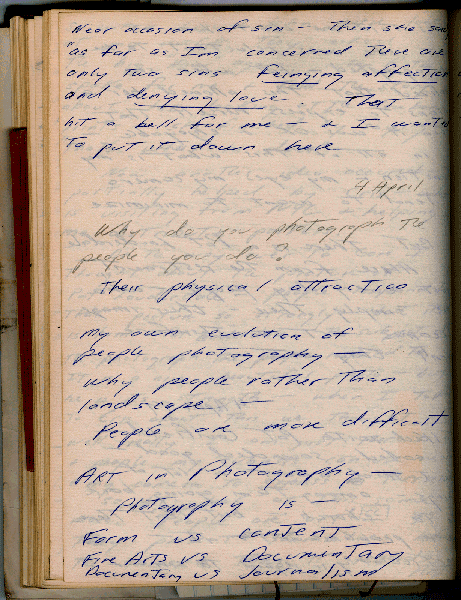 Near occasion of sin — Then she said
"as far as I'm concerned there are
only two sins feinying affection
and denying love. That
hit a bell for me — & I wanted
to put it down here
4 April
Why do you photograph the
people you do?
Their physical attraction
my own evolution of
people photography —
why people rather than
landscape —
People are more difficult
ART in Photography —
Photography is —
Form vs content
Fine Arts vs Documentary
Documentary vs Journalism